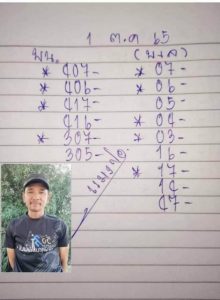 1 ต.ค 65
พน. (มเล)
* 407- * 07-
* 406- * 06-
* 417- 05-
416- * 04-
* 307- * 03-
305- 16-
* 17-
14-
47-